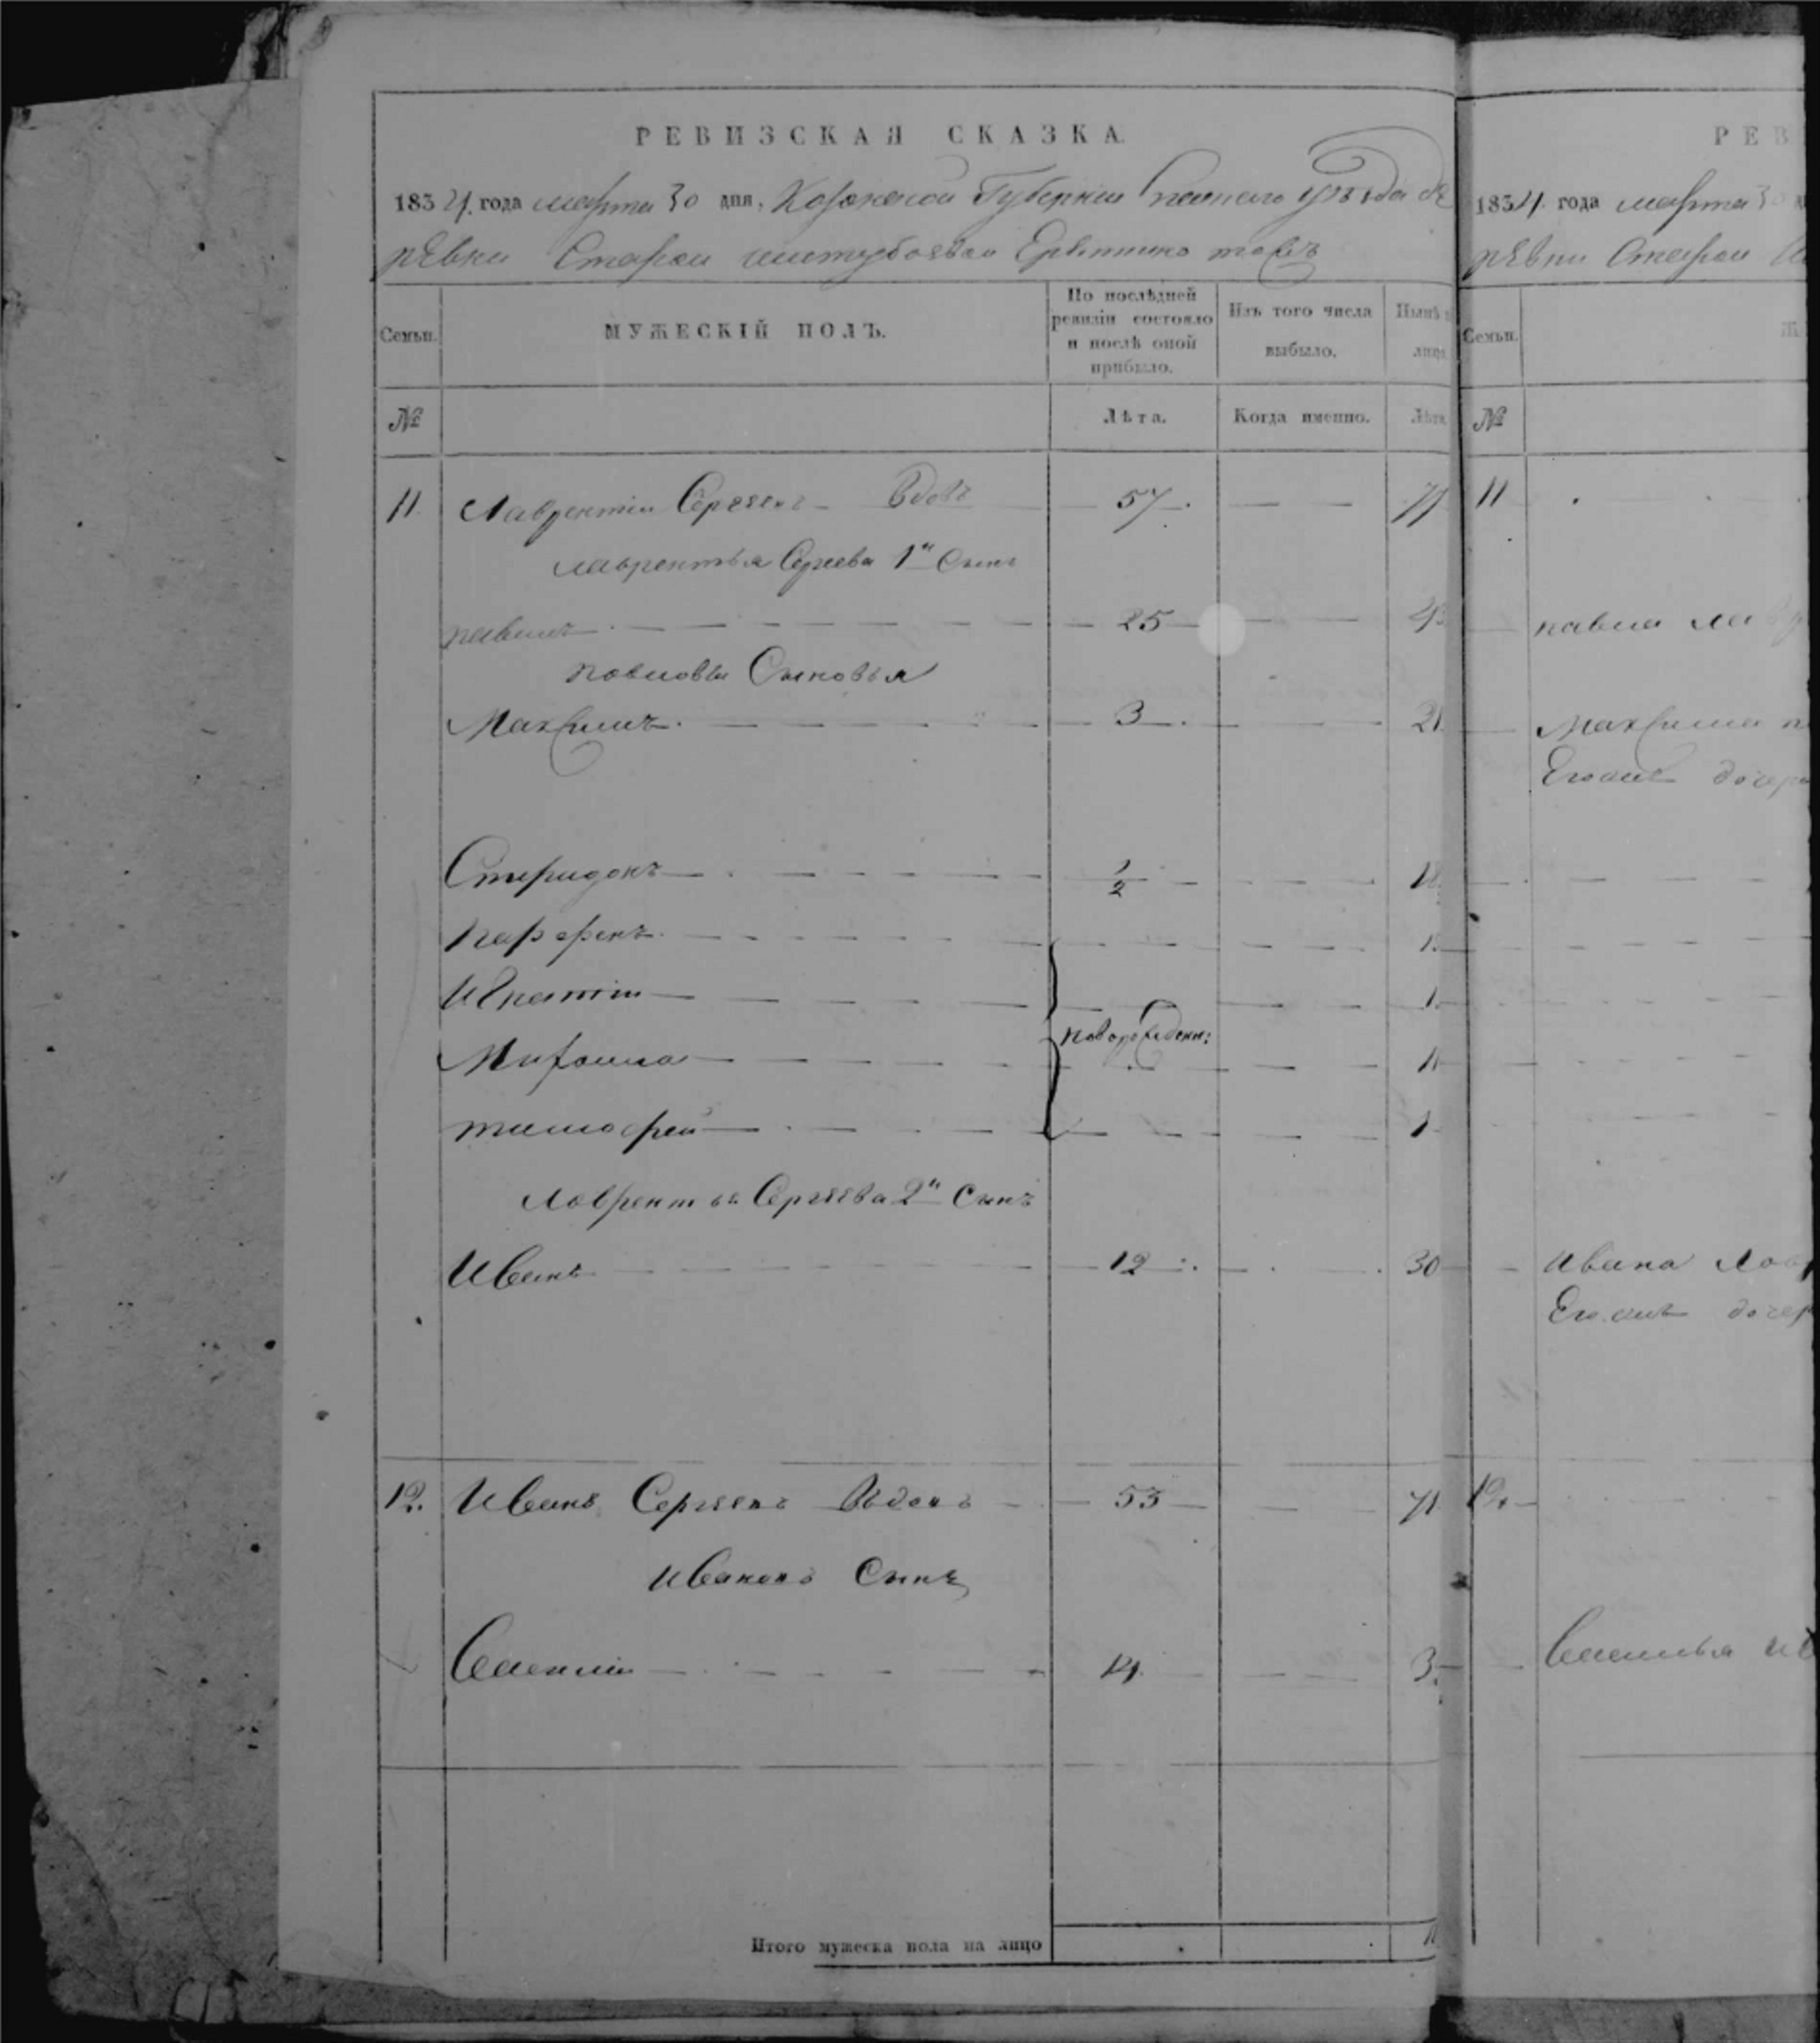 РЕВИЗСКАЯ СКАЗКА.
1834 года марта 30 дня, Казанской Губернии уѣзда де
ревни Старой тожъ
Семьи.
МУЖЕСКІЙ ПОЛЪ.
По послѣдней ревизіи состояло и послѣ оной прибыло.
Изъ того числа выбыло.
Нынѣ
лицо
№
Лѣта.
Когда именно.
Лѣта
11 Лаврентіи Сергѣевъ Вдовъ 57
Лаврентья Сергеева 1й Сынъ
павилъ 25
павиловы Сыновья
Максимъ 3 21
Спиридонъ 1/2 18
парфенъ
Игнатіи
новорожден:
Михаила
тимофей
Лаврентья Сергѣева 2й Сынъ
Иванъ 12 30
12. Иванъ Сергѣевъ Вдовъ 53 71
Ивановъ Сынъ
Василіи 14 3
Итого мужеска пола на лицо
РЕВ
1834 года марта 30
ревни Старой
Семьи.
№
11
павила лав
Максима п
Егоже дочери
Ивана Лав
Егоже дочер
12.
Василья Ив